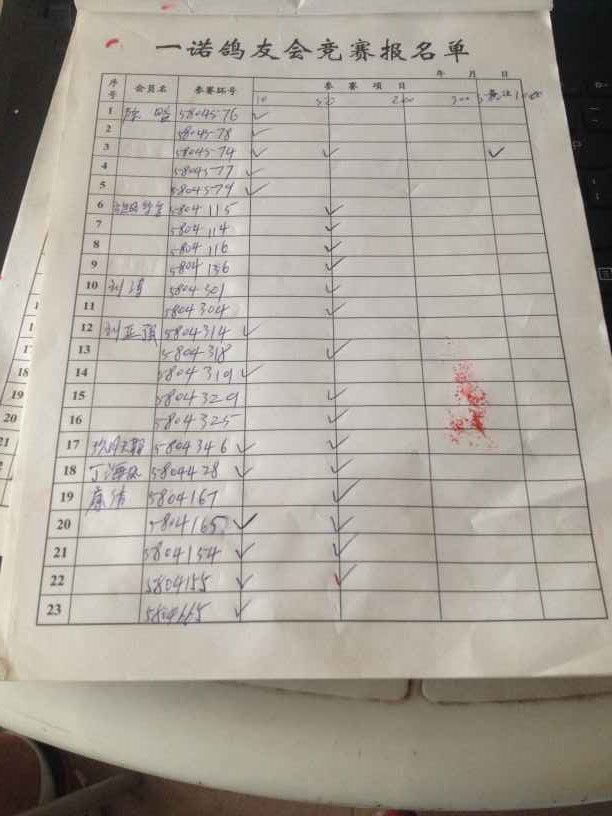 一诺鸽友会竞赛报名单
年 月 日
序号 会员名 参赛环号 参赛项目
10 50 200 300
1 5804576 ✓
2 5804578 ✓
3 5804574 ✓ ✓ ✓
4 5804577 ✓
5 5804579 ✓
6 5804115 ✓
7 5804114 ✓
8 5804116 ✓
9 5804136 ✓
10 刘涛 5804301 ✓
11 5804304 ✓
12 刘亚强 5804314 ✓
13 5804318 ✓
14 5804319 ✓
15 5804329 ✓
16 5804325 ✓
17 5804346 ✓ ✓
18 丁海 5804428 ✓ ✓
19 康伟 5804167 ✓
20 5804165 ✓ ✓
21 5804154 ✓ ✓
22 5804155 ✓ ✓
23 ✓
1
17
18
19
20
21
22